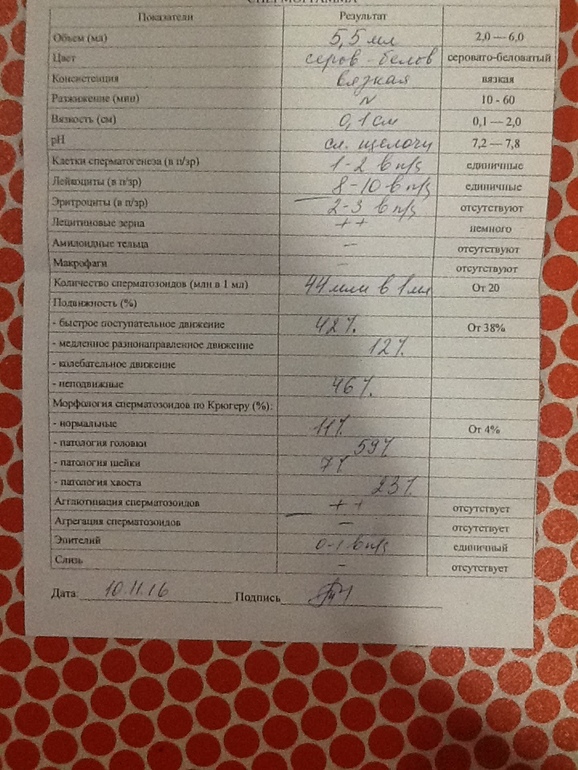 СПЕРМОГРАММА
Показатели Результат
Объем (мл) 5,5 мл 2,0 — 6,0
Цвет серов - белов серовато-беловатый
Консистенция вязкая вязкая
Разжижение (мин) N 10 - 60
Вязкость (см) 0,1 см 0,1 — 2,0
pH сл. щелочн 7,2 — 7,8
Клетки сперматогенеза (в п/зр) 1-2 в п/з единичные
Лейкоциты (в п/зр) 8-10 в п/з единичные
Эритроциты (в п/зр) 2-3 в п/з отсутствуют
Лецитиновые зерна ++ немного
Амилоидные тельца – отсутствуют
Макрофаги – отсутствуют
Количество сперматозоидов (млн в 1 мл) 44 млн в 1 мл От 20
Подвижность (%)
- быстрое поступательное движение 42% От 38%
- медленное разнонаправленное движение 12%
- колебательное движение
- неподвижные 46%
Морфология сперматозоидов по Крюгеру (%):
- нормальные 11% От 4%
- патология головки 59%
- патология шейки 7%
- патология хвоста 23%
Агглютинация сперматозоидов ++ отсутствует
Агрегация сперматозоидов – отсутствует
Эпителий 0-1 в п/з единичный
Слизь – отсутствует
Дата 10.11.16 Подпись